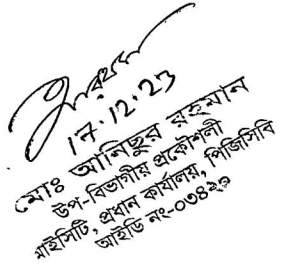 17.12.23
মোঃ আনিছুর রহমান
উপ-বিভাগীয় প্রকৌশলী
প্রধান কার্যালয়, পিজিসিবি
আইডি নং-০৩৪২০